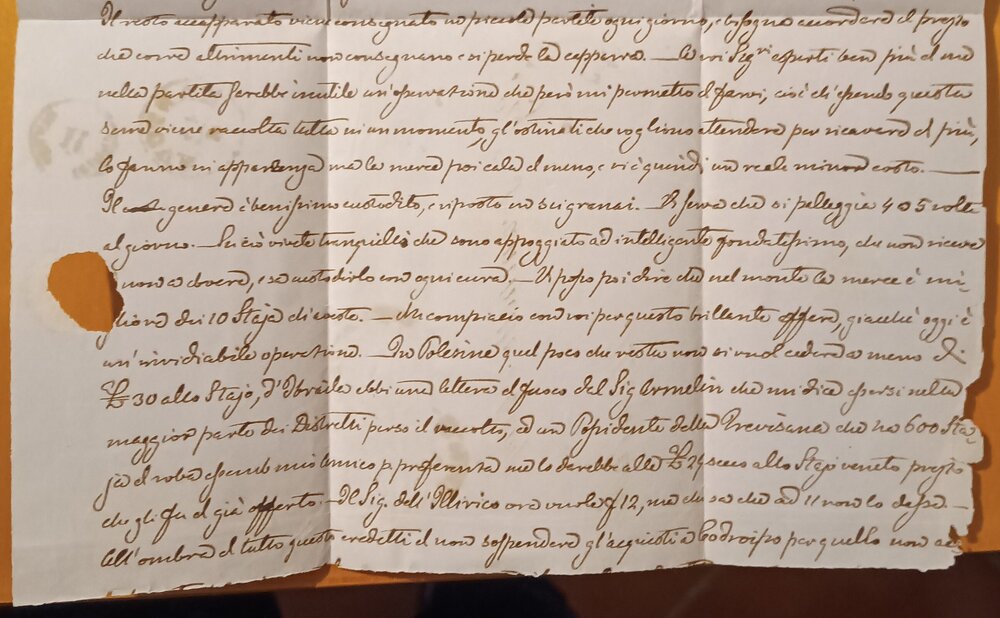 Il resto accapparato viene consegnato in piccole partite ogni giorno, e bisogna accordare il prezzo
che corre altrimenti non consegnano e si perde la capparra. — A voi Sig.ri esperti ben più di me
nella partita sarebbe inutile un'osservazione che però mi permetto di farvi, cioè ch'essendo questa
viene raccolta tutta in un momento, gl'ostinati che vogliono attendere per ricavare di più,
lo fanno in apparenza ma la merce poi cala di meno, e vi è quindi un reale minor costo. —
Il genere è benissimo custodito, e riposto in sei granai. — che si paleggia 4 o 5 volte
al giorno. — Su ciò vivete tranquilli che sono appoggiato ad intelligente fondatissimo, che non riceve
non a dovere, e sa custodirlo con ogni cura. — Vi posso poi dire che nel monte la merce è mi-
gliore dei 10 Staja — Mi compiaccio con voi per questo brillante affare, giacchè oggi è
un'invidiabile operazione. — In Polesine quel poco che resta non si vuol cedere a meno di
30 allo Stajo, d'Ibraila ebbi una lettera di fuoco del Sig. Armelin che mi dice essersi nella
maggior parte dei Distretti perso il raccolto, ed un Possidente della Trevisana che ha 600 Sta-
ja di roba essendo mio amico p. preferenza me lo darebbe alle 24 allo Stajo veneto prezzo
che gli fu di già offerto. — Il Sig. dell'Illirico ora vuole f 12, ma chi sa che ad 11 non lo desse. —
All'ombra di tutto questo credetti di non sospendere gl'acquisti a Codroipo per quello non